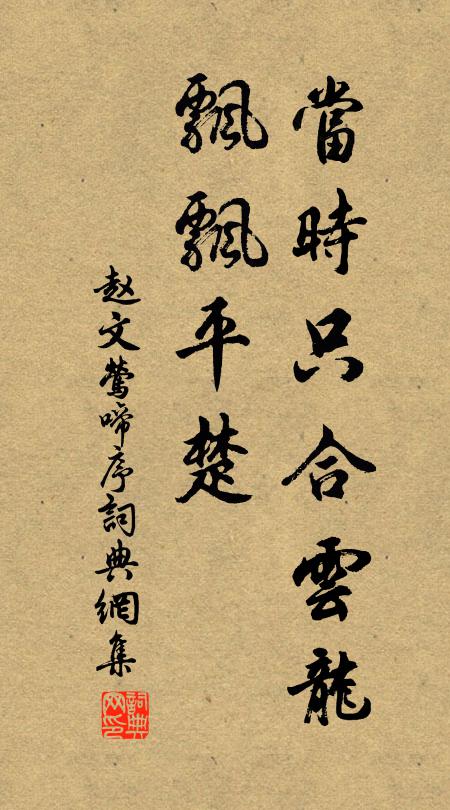 當時只合雲龍
飄飄平楚
赵文鶯啼序詞典網集
詞典網印